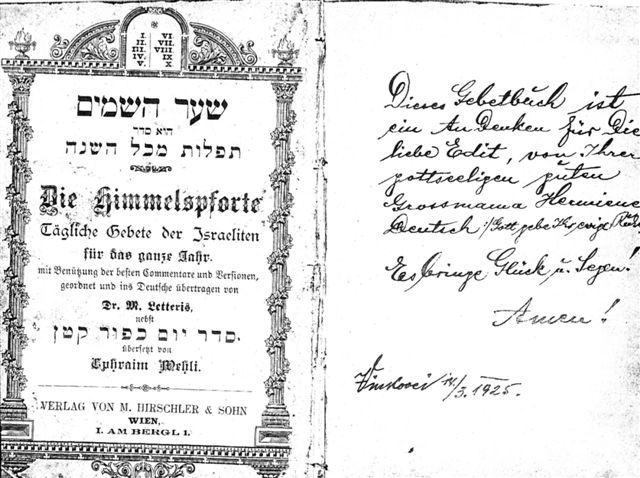 I. VI.
II. VII.
III. VIII.
IV. IX
V. X
שער השמים
הוא סדר
תפלות מכל השנה
Die Himmelspforte
Tägliche Gebete der Israeliten
für das ganze Jahr.
mit Benützung der besten Commentare und Versionen,
geordnet und ins Deutsche übertragen von
Dr. M. Letteris,
nebst
סדר יום כפור קטן.
übersetzt von
Ephraim Mehli.
VERLAG VON M. HIRSCHLER & SOHN
WIEN,
I. AM BERGL 1.
Dieses Gebetbuch ist
ein Andenken für Die
liebe Edit, von Ihrer
gottseeligen guten
Grossmama Hermiene
Deutsch :/Gott gebe Ihr, ewige Ruhe
Es bringe Glück u. Segen!
Amen!
Vinkovci 14./3. 1925.